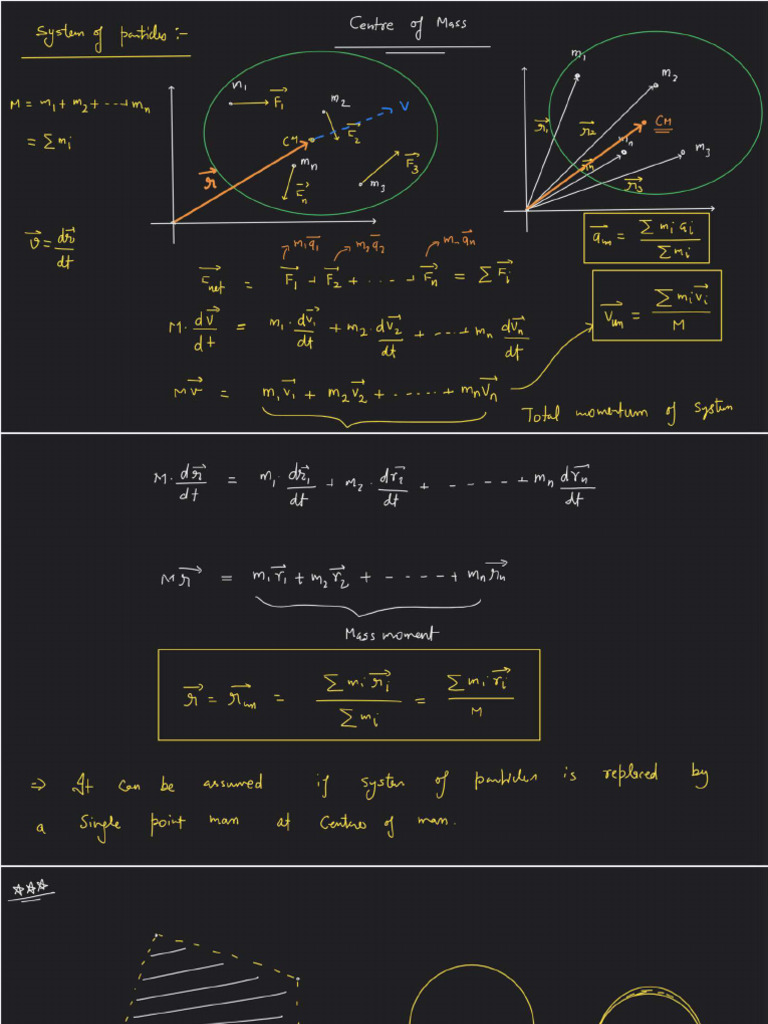 Centre of Mass
System of particles :-
M = m₁ + m₂ + ----+ mₙ
= Σ mᵢ
v⃗ = dr⃗/dt
m₁
F⃗₁
m₂
F⃗₂
V
CM
mₙ
F⃗ₙ
F⃗₃
m₃
r⃗
m₁
m₂
CM
mₙ
m₃
r⃗₁
r⃗₂
r⃗ₙ
r⃗₃
m₁a⃗₁
m₂a⃗₂
m-a⃗ₙ
F⃗net = F⃗₁ + F⃗₂ + ----+ F⃗ₙ = Σ F⃗ᵢ
a⃗cm = Σ mᵢ aᵢ / Σ mᵢ
M · dv⃗/dt = m₁ · dv⃗₁/dt + m₂ · dv⃗₂/dt + ----+ mₙ dv⃗ₙ/dt
v⃗cm = Σ mᵢ v⃗ᵢ / M
Mv⃗ = m₁v⃗₁ + m₂v⃗₂ + -----+ mₙv⃗ₙ
Total momentum of system
M · dr⃗/dt = m₁ · dr⃗₁/dt + m₂ · dr⃗₂/dt + -----+ mₙ dr⃗ₙ/dt
Mr⃗ = m₁r⃗₁ + m₂r⃗₂ + -----+ mₙr⃗ₙ
Mass moment
r⃗ = r⃗cm = Σ mᵢ r⃗ᵢ / Σ mᵢ = Σ mᵢ r⃗ᵢ / M
⇒ It can be assumed if system of particles is replaced by
a single point mass at Centres of mass.